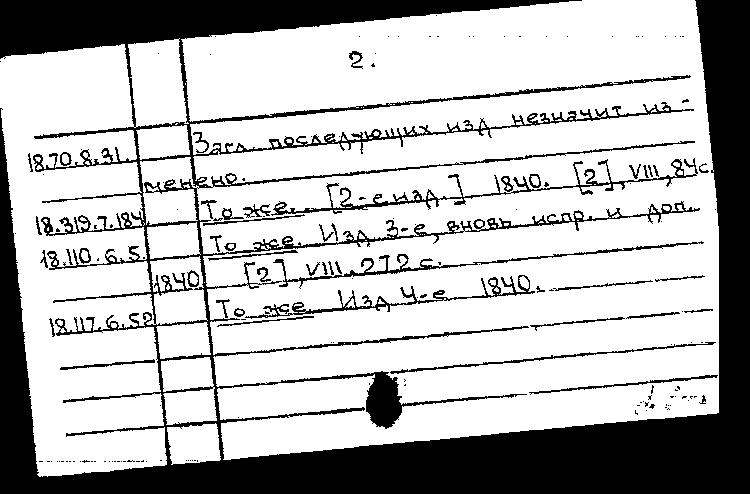 2.
18.70.8.31. Загл. последующих изд незначит. из-
менено.
18.319.7.184 То же. [2-е изд.] 1840. [2], VIII, 84с.
18.110.6.5. То же. Изд 3-е, вновь испр. и доп.
1840 [2], VIII, 272 с.
18.117.6.52 То же. Изд 4-е 1840.